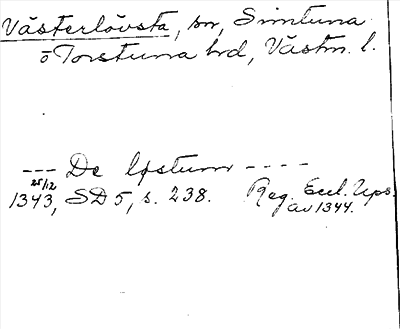 Västerlövsta, sn, Simtuna
o Torstuna hd, Västm. l.
--- De löstum ----
25/12
1343, SD 5, s. 238. Reg. Eccl. Ups.
av 1344.